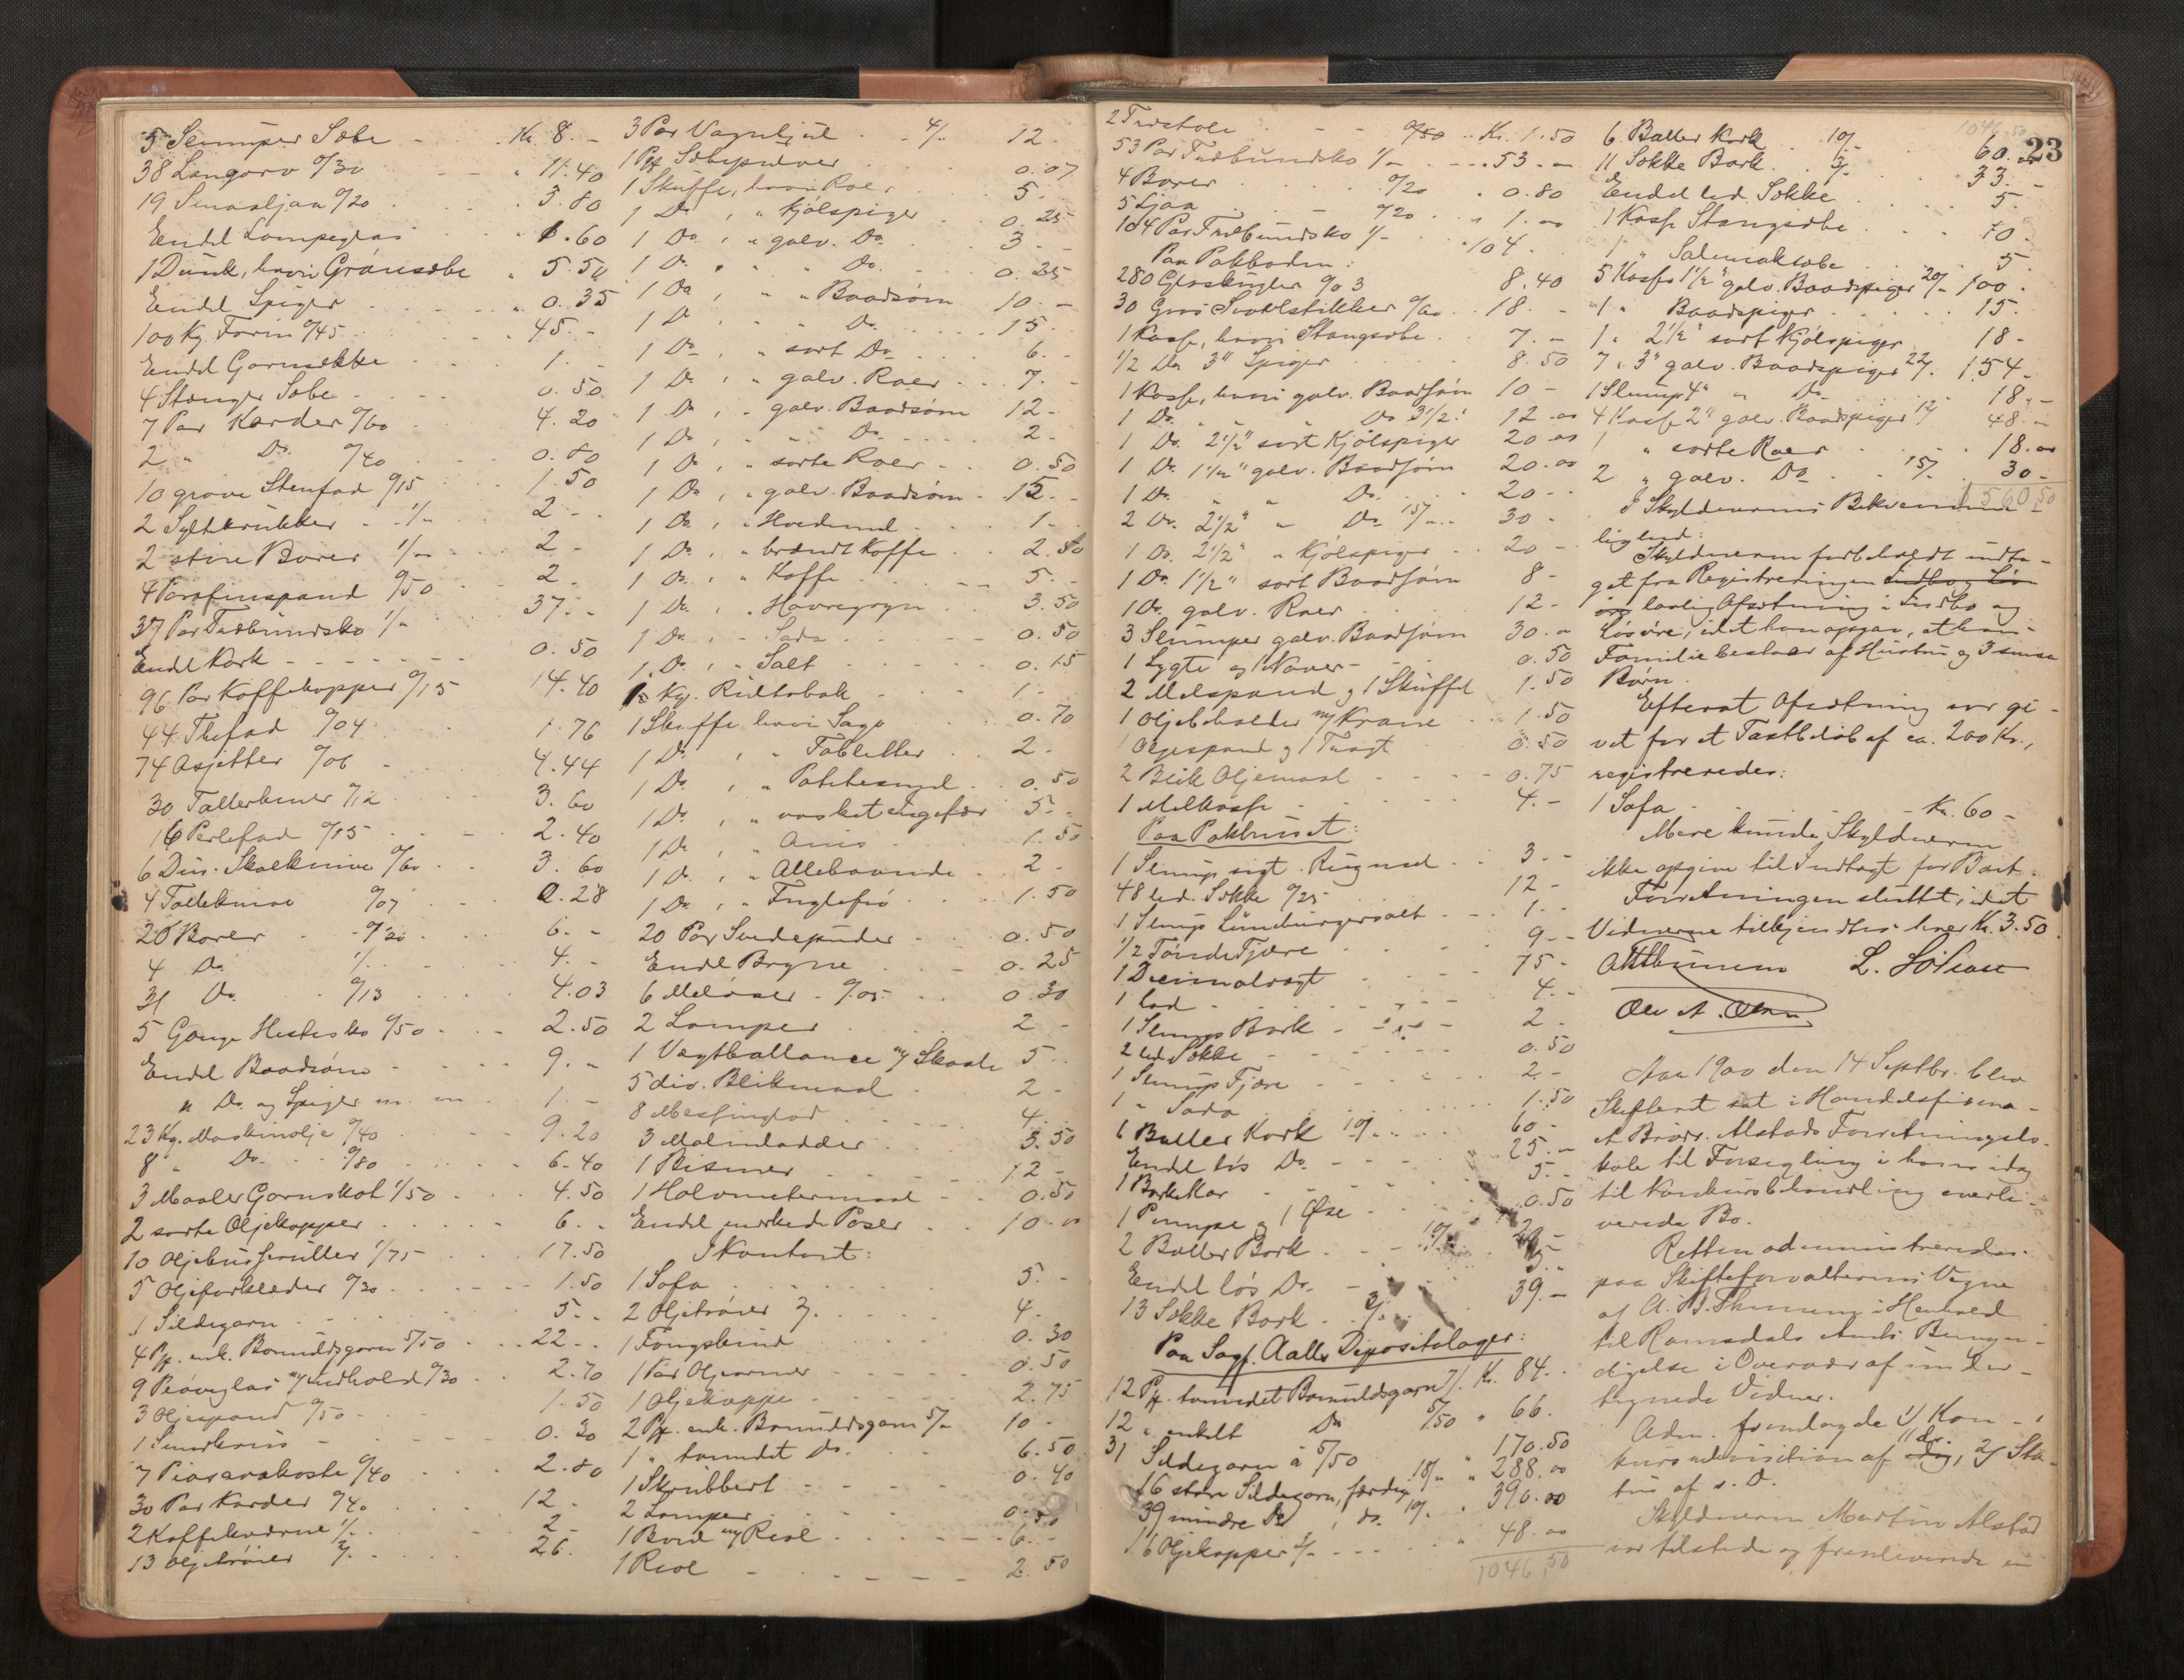 5 Slumper Sæbe - Kr. 8. -
38 Langorv 0/30 " 11.40
19 Smaaljaa 0/20 3.80
Endel Lampeglas 1.60
1 Dunk, hvori Grønsæbe " 5.50
Endel Spiger " 0.35
100 Kg. Farin 0/45 45. -
Endel Garnsække 1. -
4 Stænger Sæbe 0.50
7 Par Karder 0/60 4.20
2 " Do. 0/40 0.80
10 grove Stenfad 0/15 1.50
2 Syltekrukker 1/- 2 -
2 store Borer 1/- 2 -
4 Parafinspand 0/50 2 -
37 Par Træbundsko 1/- 37. -
Endel Kork 0.50
96 Par Kaffekopper 0/15 14.40
44 Thefad 0/04 1.76
74 Asjetter 0/06 4.44
30 Tallerkener 0/12 3.60
16 Perlefad 0/15 2.40
6 Dus. Skalknive 0/60 3.60
4 Tællekniver 0/07 0.28
20 Borer 0/30 6. -
4 Do. 1/- 4. -
31 Do. 0/13 4.03
5 Gange Hestesko 0/50 2.50
Endel Baadsøm 9. -
" Do. og Spiger m. m. 1. -
23 Kg. Maskinolje 0/40 9.20
8 " Do. 0/80 6.40
3 Maaler Garnskot 1/50 4.50
2 sorte Oljekapper 6. -
10 Oljebusseruller 1/75 17.50
5 Oljeforklæder 0/30 1.50
1 Sildegarn 5. -
4 Pk. enk. Bomuldsgarn 5/50 22 -
9 Prøveglas m/ Indhold 0/30 2.70
3 Oljespand 0/50 1.50
1 0.30
7 Piasavakoste 0/40 2.80
30 Par Karder 0/40 12 -
2 Kaffekværne 1/- 2 -
13 Oljetrøier 2/- 26.
3 Par Vognhjul 4/- 12.
1 Pk. Sæbepulver 0.07
1 Skuffe, hvori Roer 5. -
1 Do. , " Kjølspiger 0.25
1 Do. , " galv. Do. 3 -
1 Do. " " Do. 0.25
1 Do. , " " Baadsøm 10. -
1 Do. " " Do. 15. -
1 Do. , " sort Do. 6. -
1 Do. , " galv. Roer 7. -
1 Do. , " galv. Baadsøm 12 -
1 Do. , " " Do. 2 -
1 Do. , " sorte Roer 0.50
1 Do. , " galv. Baadsøm 15. -
1 Do. , " Hvedemel 1 -
1 Do. , " brændt Kaffe 2.50
1 Do. , " Kaffe 5. -
1 Do. , " Havregryn 3.50
1 Do. , " Soda 0.50
1 Do. , " Salt 0.15
Kg. Rultobak 1 -
1 Skuffe hvori Sago 0.70
1 Do. , " Tabletter 2 -
1 Do. , " Potetesmel 0.50
1 Do. , " vasket Ingefær 5. -
1 Do. , " Anis 1.50
1 Do. , " Allehaande 2 -
1 Do. , " Fuglefrø 1.50
20 Par Svedepuder 0.50
Endel Bryne 0.25
6 Meløser 0/05 0.30
2 Lamper 2 -
1 Vægtballance m/ Skaale 5. -
5 div. Blikmaal 2 -
8 Messinglod 4 -
3 Malmlodder 3.50
1 Bismer 12 -
1 Halvmetermaal 0.50
Endel mærkede Poser 10.00
I Kontoret:
1 Sofa 5. -
2 Oljetrøier 2/- 4 -
1 Fangskind 0.30
1 Par Oljeærmer 0.50
1 Oljekappe 2.75
2 Pk. enk. Bomuldsgarn 5/- 10 -
1 " tvundet Do. 6.50
1 Skrubbert 0.40
2 Lamper 0.50
1 Bord m/ Reol 6. -
1 Reol 2.50
2 Træstole 0/50 Kr. 1.50
53 Par Træbundsko 1/- 53. -
4 Borer 0/20 " 0.80
5 Ljaa 0/20 " 1.00
104 Par Træbundsko 1/- " 104.
Paa Pakboden:
280 Glaskugler 0/03 8.40
30 Gros Svovlstikker 0/60 18. -
1 Kasse, hvori Stangsæbe 7. -
1/2 Do. 3" Spiger 8.50
1 Kasse, hvori galv. Baadsøm 10 -
1 Do. " " Do 3 1/2" 12.00
1 Do. 2 1/2" sort Kjølspiger 20.00
1 Do. 1 1/2" galv. Baadsøm 20.00
1 Do. " " Do. 20 -
2 Do. 2 1/2" " Do. 15/- 30 -
1 Do. 2 1/2" " Kjølspiger 20 -
1 Do. 1 1/2" sort Baadsøm 8 -
1 Do. galv. Roer 12 -
3 Slumper galv. Baadsøm 30. -
1 Lygte og 1 Naver 0.50
2 Melspand og 1 Skuffel 1.50
1 Oljebeholder m/ Krane 1.50
1 Oljespand og 1 Tragt 0.50
2 Blik Oljemaal 0.75
1 Melkasse 4. -
Paa Pakhuset:
1 Slump sigt. Rugmel 3. -
48 led. Sække 0/25 12 -
1 Slump Lüneburgersalt 1. -
1/2 Tønde Tjære 9 -
1 Decimalvægt 75 -
1 Lad 4. -
1 Slump Bark 2 -
2 led. Sække 0.50
1 Slump Tjære 2. -
1 " Soda 1.50
6 Baller Kork 10/- 60 -
Endel løs Do. 25. -
1 Barkekar 5. -
1 Pumpe og 1 Øse 0.50
2 Baller Bark 10/-
Endel løs Do. 5. -
13 Sække Bark 3/- 39. -
Paa Sagf. Aalls Depositolager:
12 Pk. tvundet Bomuldsgarn 7/- Kr. 84. -
12 " enkelt Do 5/50 " 66.
31 Sildegarn à 5/50 " 170.50
16 store Sildegarn, færdige 18/- " 288.00
39 mindre Do , do. 10/- " 390.00
16 Oljekapper 3/- " 48.00
1046,50
1046,50
23
6 Baller Kork 10/- 60. -
11 Sække Bark 3/- 33. -
Endel led. Sække 5. -
1 Kasse Stangsæbe 10 -
1 " Salmiaksæbe 5 -
5 Kasser 1 1/2" galv. Baadspiger 20/- 100 -
1 " Baadspiger 15.
1 " 2 1/2" sort Kjølspiger 18 -
7 " 3" galv. Baadspiger 22/- 154 -
1 Slump 4" " Do. 18. -
4 Kasser 2" galv. Baadspiger 12/- 48. -
1 " sorte Roer 18.00
2 " galv. Do. 15/- 30 -
1560,50
I Skyldnerens Bekvemme-
lighed:
Skyldneren forbeholdt undta-
get fra Registreringen Indbo og Løs
øre lovlig Afsætning i Indbo og
Løsøre, idet han opgav, at han-
Familie bestaar af Hustru og 3 smaa
Børn.
Efterat Afsætning var gi-
vet for et Taxtbeløb af ca. 200 Kr.,
registreredes:
1 Sofa - Kr. 60 -
Mere kunde Skyldneren
ikke opgive til Indtægt for Boet.
Forretningen sluttet, idet
Vidnerne tilkjendtes hver Kr. 3.50.
L.
Ole A. Olsen
Aar 1900 den 14 Septbr. blev
Skifteret sat i Handelsfirma-
et Brødr. Alstads Forretningslo-
kale til Forsegling i dets idag
til Konkursbehandling overle-
verede Bo.
Retten administreredes
paa Skifteforvalterens Vegne
af A. B. i Henhold
til Romsdals Amts Bemyn-
digelse i Overvær af under-
tegnede Vidner.
Adm. fremlagde 1/ Kon-
kursrekvisition af dag, 2/ Sta-
tus af s. D.
Skyldneren Martin Alstad
var tilstede og fremleverede en